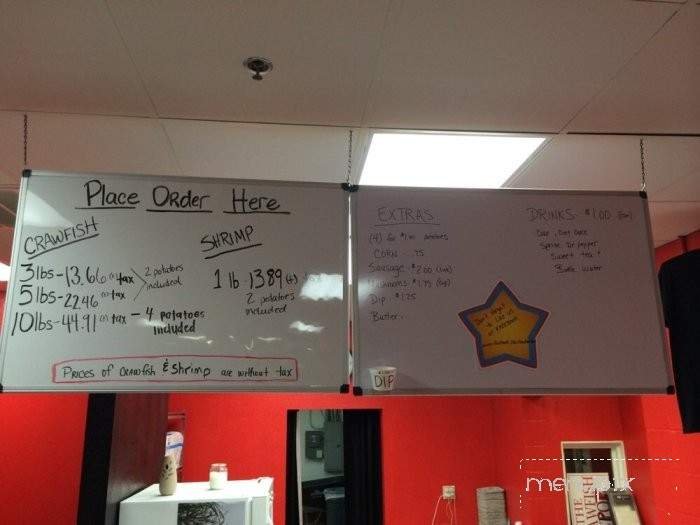 Place Order Here
CRAWFISH
3 lbs - 13.66 (+) tax
5 lbs - 22.46 (+) tax
2 potatoes
included
10 lbs - 44.91 (+) tax - 4 potatoes
included
SHRIMP
1 lb 13.89 (+) tax
2 potatoes
included
PRICES OF CRAWfish & Shrimp are without tax
EXTRAS
(4) for $1.00 potatoes
CORN .75
Sausage $2.00
$1.75
Dip $1.25
Butter
DRINKS $1.00
Coke, Diet Coke
Sprite Dr. pepper
Sweet tea
Bottle water
Don't forget
to like us
on FACEBOOK
DIP
THE
menupix